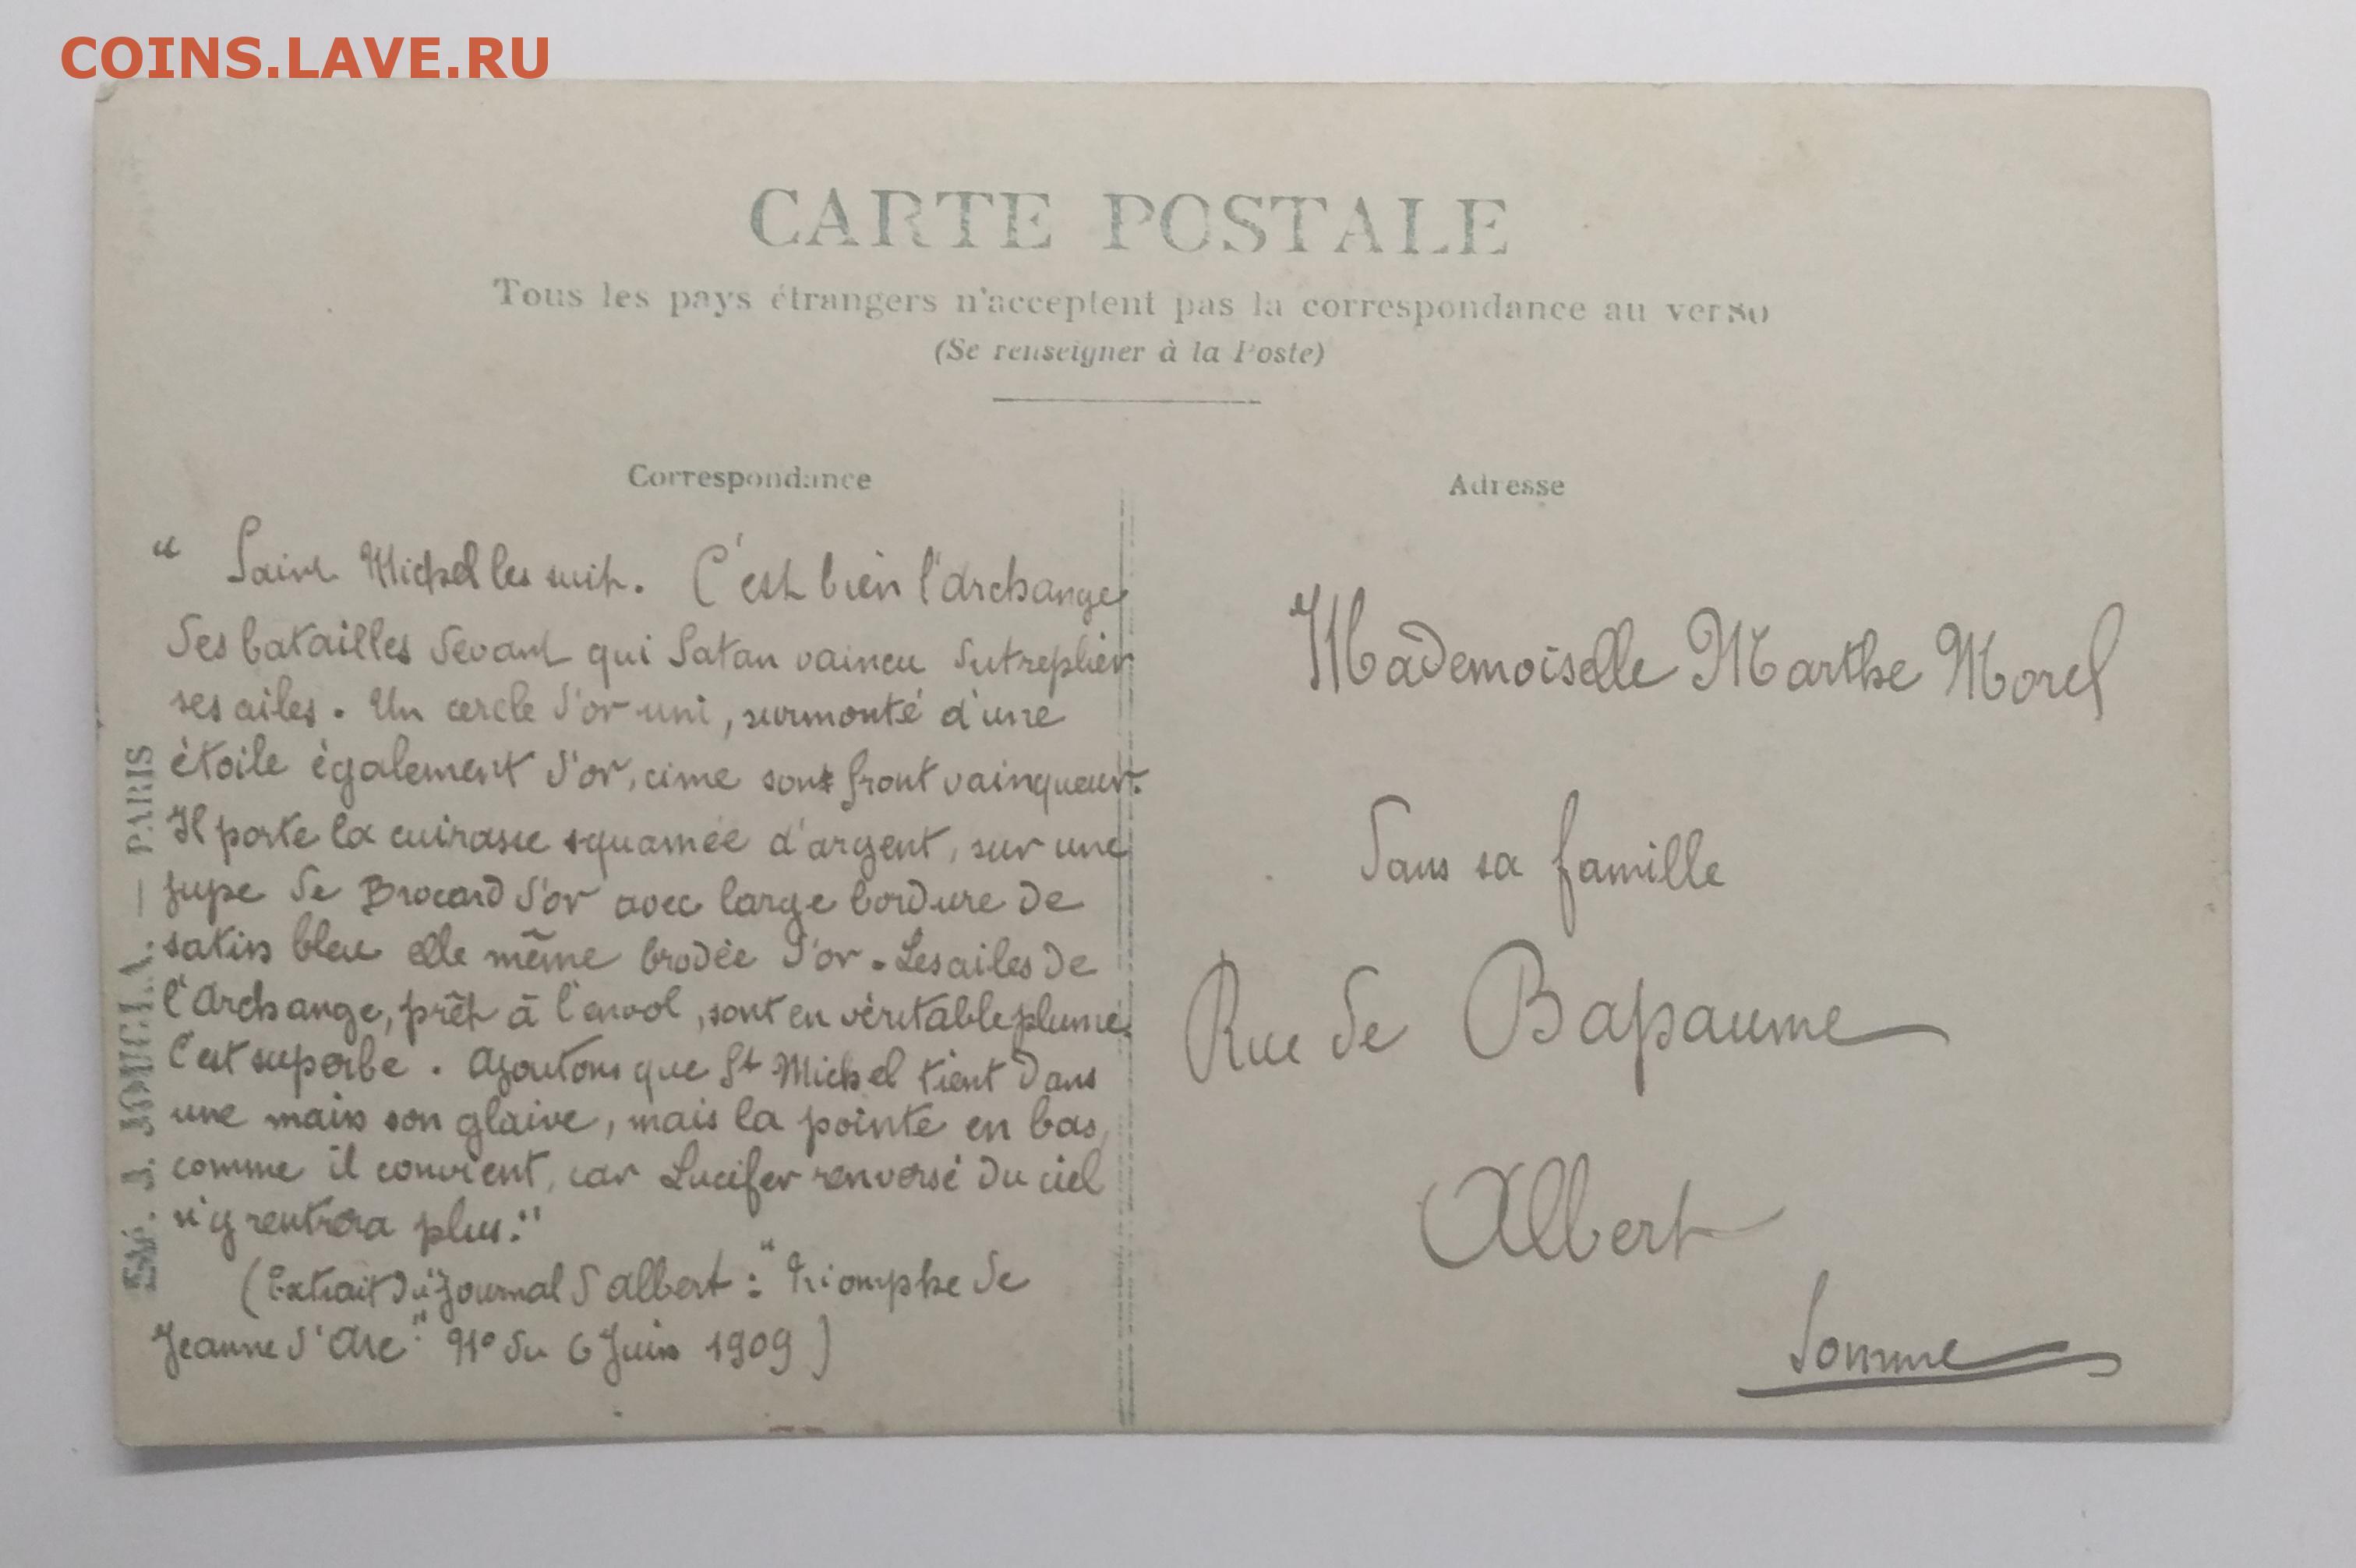 COINS.LAVE.RU
CARTE POSTALE
Tous les pays étrangers n'acceptent pas la correspondance au verso
(Se renseigner à la Poste)
Correspondance
" Saint Michel les suit. C'est bien l'Archange
des batailles devant qui Satan vaincu dut replier
ses ailes. Un cercle d'or uni, surmonté d'une
étoile également d'or, cime son front vainqueur.
Il porte la cuirasse squamée d'argent, sur une
jupe de Brocard d'or avec large bordure de
satin bleu elle même brodée d'or. Les ailes de
l'Archange, prêt à l'envol, sont en véritable plume.
C'est superbe. Ajoutons que St Michel tient dans
une main son glaive, mais la pointe en bas,
comme il convient, car Lucifer renversé du ciel
n'y rentrera plus."
(Extrait du "Journal d'Albert : "Triomphe de
Jeanne d'Arc" No du 6 Juin 1909)
Adresse
Mademoiselle Marthe Morel
dans sa famille
Rue de Bapaume
Albert
Somme
J. JOUGLA. — PARIS